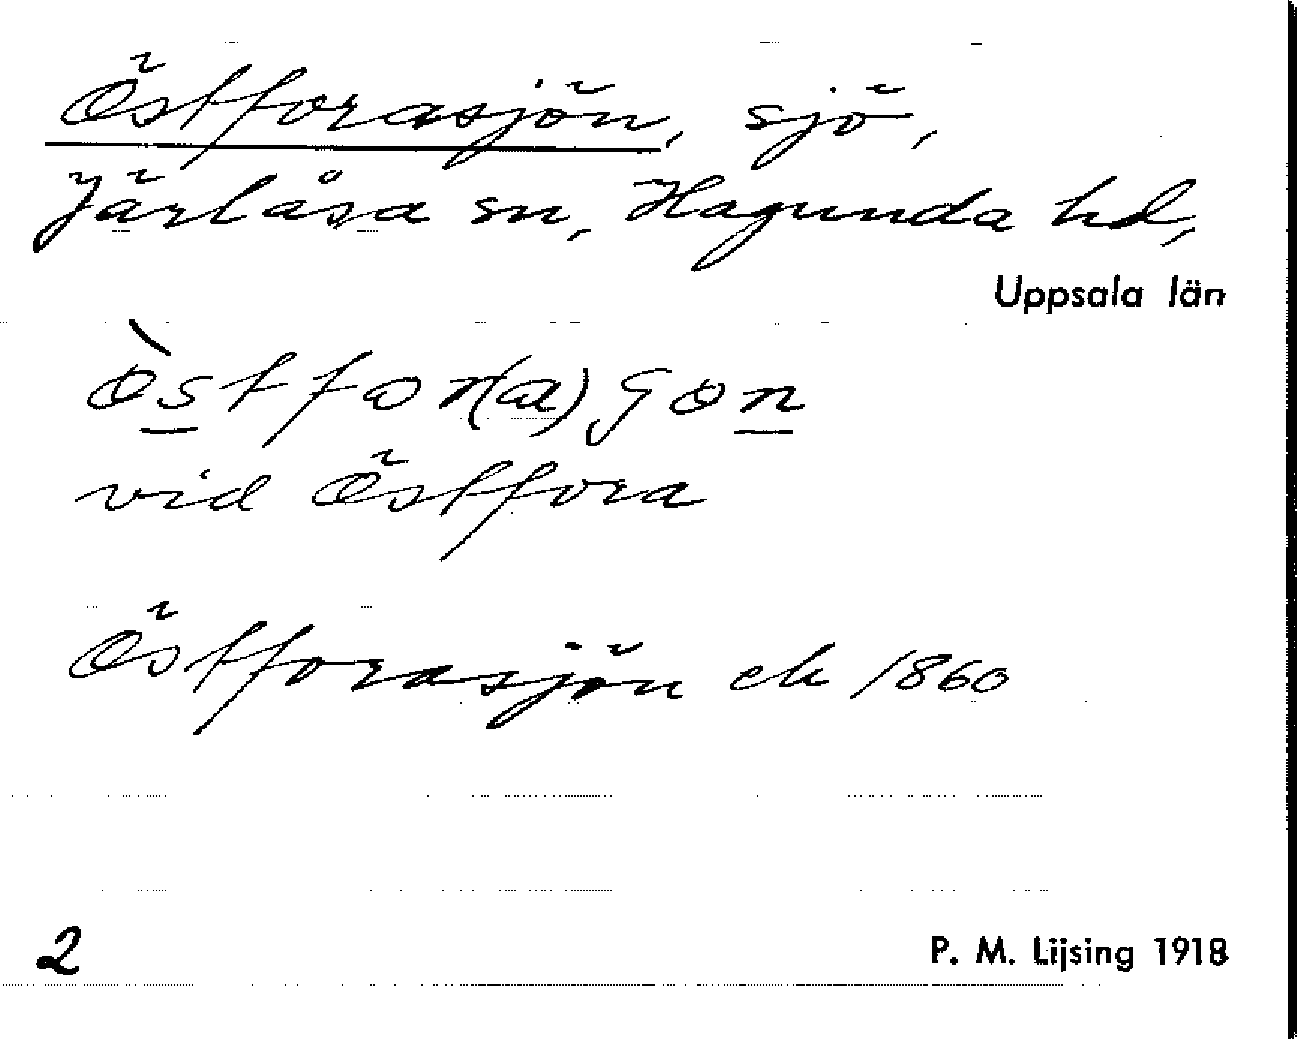 Östforasjön, sjö,
Järlåsa sn, Hagunda hd,
Uppsala län
vid Östfora
Östforasjön ek 1860
2
P. M. Lijsing 1918